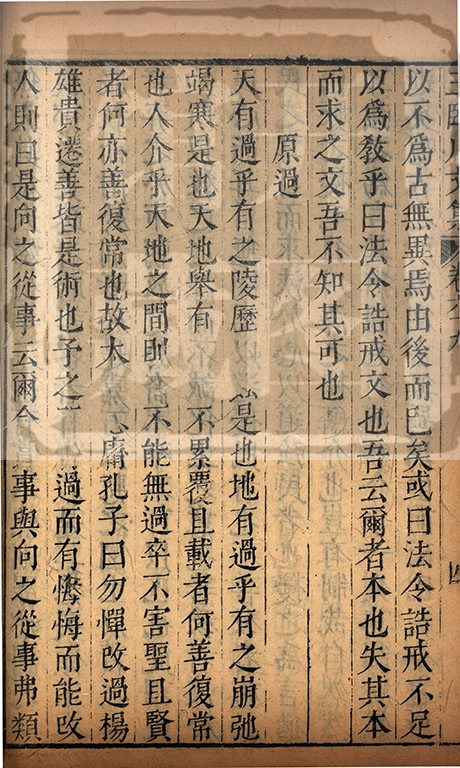 王臨川文集 卷六九 四
以不爲古無異焉由後而已矣或曰法令誥戒不足
以爲敎乎曰法令誥戒文也吾云爾者本也失其本
而求之文吾不知其可也
原過
天有過乎有之陵歷是也地有過乎有之崩弛
竭寒是也天地舉有不累覆且載者何善復常
也人介乎天地之間則不能無過卒不害聖且賢
者何亦善復常也故太庸孔子曰勿憚改過楊
雄貴遷善皆是術也予之過而有悔悔而能改
人則曰是向之從事云爾今事與向之從事弗類